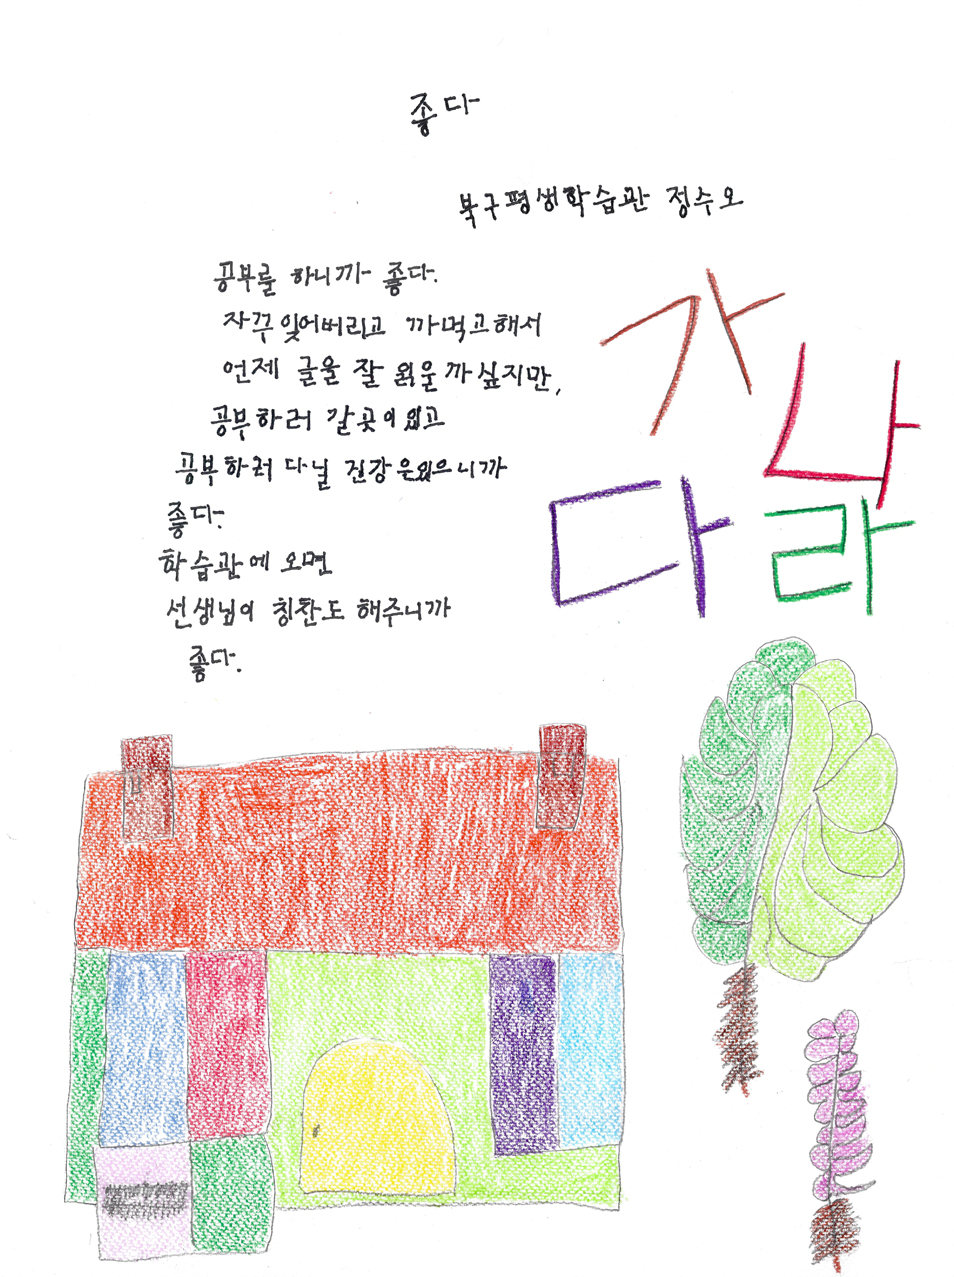 좋다
북구평생학습관 정수오
공부를 하니까 좋다.
자꾸 잊어버리고 까먹고해서
언제 글을 잘 읽을까 싶지만,
공부하러 갈곳이있고
공부하러 다닐 건강은있으니까
좋다.
학습관에 오면
선생님이 칭찬도 해주니까
좋다.
가
나
다
라